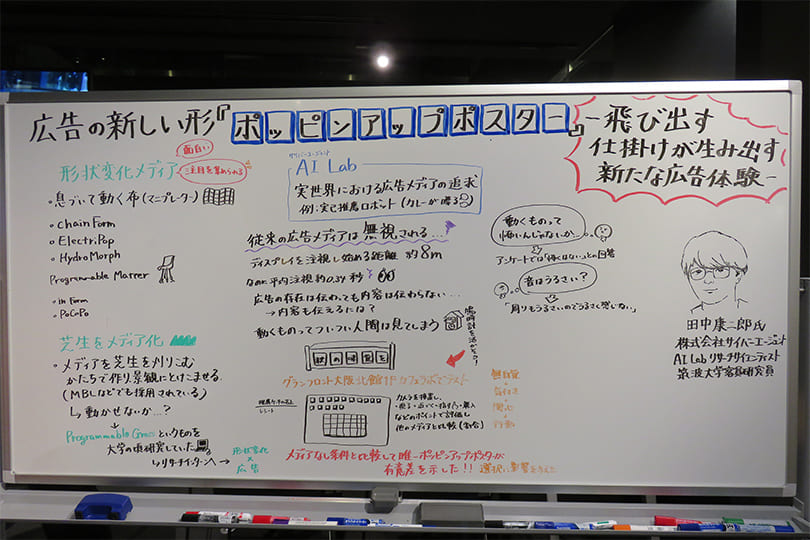 広告の新しい形『ポッピンアップポスター』
-飛び出す
仕掛けが生み出す
新たな広告体験-
面白い
形状変化メディア
注目を集められる
・息づいて動く布(マニプレータ)
・chainForm
・ElectriPop
・HydroMorph
Programmable Matter
・inForm
・PoCoPo
芝生をメディア化
・メディアを芝生を刈りこむ
かたちで作り景観にとけこませる
(MBLなどでも採用されている)
↳動かせないか…?
↓
Programmable Grassというものを
大学の頃研究していた
↳リサーチインターンへ →
形状変化
×
広告
サイバーエージェント
AI Lab
実世界における広告メディアの追求
例:実已推薦ロボット(カレーが喋る)
従来の広告メディアは無視される…
ディスプレイを注視し始める距離 約8m
なのに平均注視約0.34秒
広告の存在は伝わっても内容は伝わらない…
→内容も伝えるには?
動くものってついつい人間は見てしまう
鳩時計を活かそう?
グランフロント大阪北館1Fカフェラボでテスト
カメラを構置し、
などのポイントで評価し
他のメディアと比較
無自覚
↓
気付き
↓
関心
↓
行動
メディアなし条件と比較して唯一ポッピンアップポスターが
有意差を示した!!
選択に影響を与えた
動くものって
怖いんじゃないか…
アンケートでは「怖くはない」との回答
音はうるさい?
「周りもうるさいのでうるさく感じない」
田中康二郎氏
株式会社サイバーエージェント
AI Lab リサーチサイエンティスト
筑波大学客員研究員